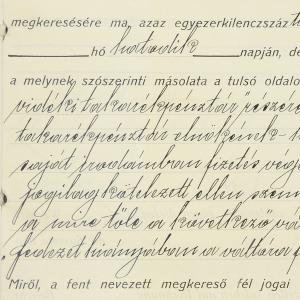 megkeresésére ma, azaz egyezerkilencszáz
hó hatodik napján, de
a melynek szószerinti másolata a tulsó oldalo
vidéki takarékpénztár" részére
takarékpénztár elnökének
saját irodámban fizetés végett
jogilag kötelezett ellen szem
a mire tőle a következő vá
"fedezet hiányában a váltóra f
Miről, a fent nevezett megkereső fél jogai